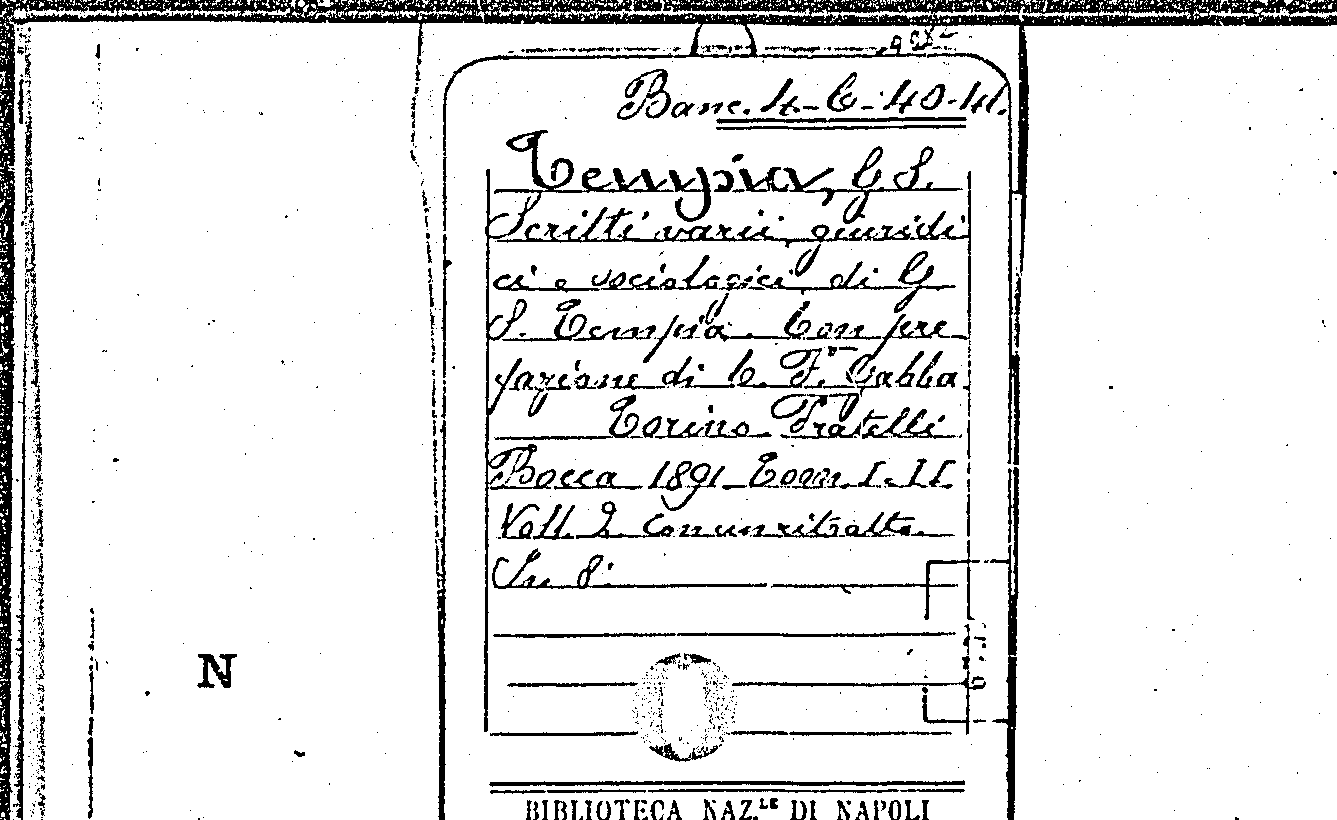 Banc. 4-C-40-41.
Tempia, G S.
Scritti varii, giuridi
ci e sociologici di G
S. Tempia. Con pre
fazione di C. F. Gabba
Torino Fratelli
Bocca 1891 Tom. I. II
Voll. 2 con un ritratto.
In 8.
N
BIBLIOTECA NAZ.LE DI NAPOLI